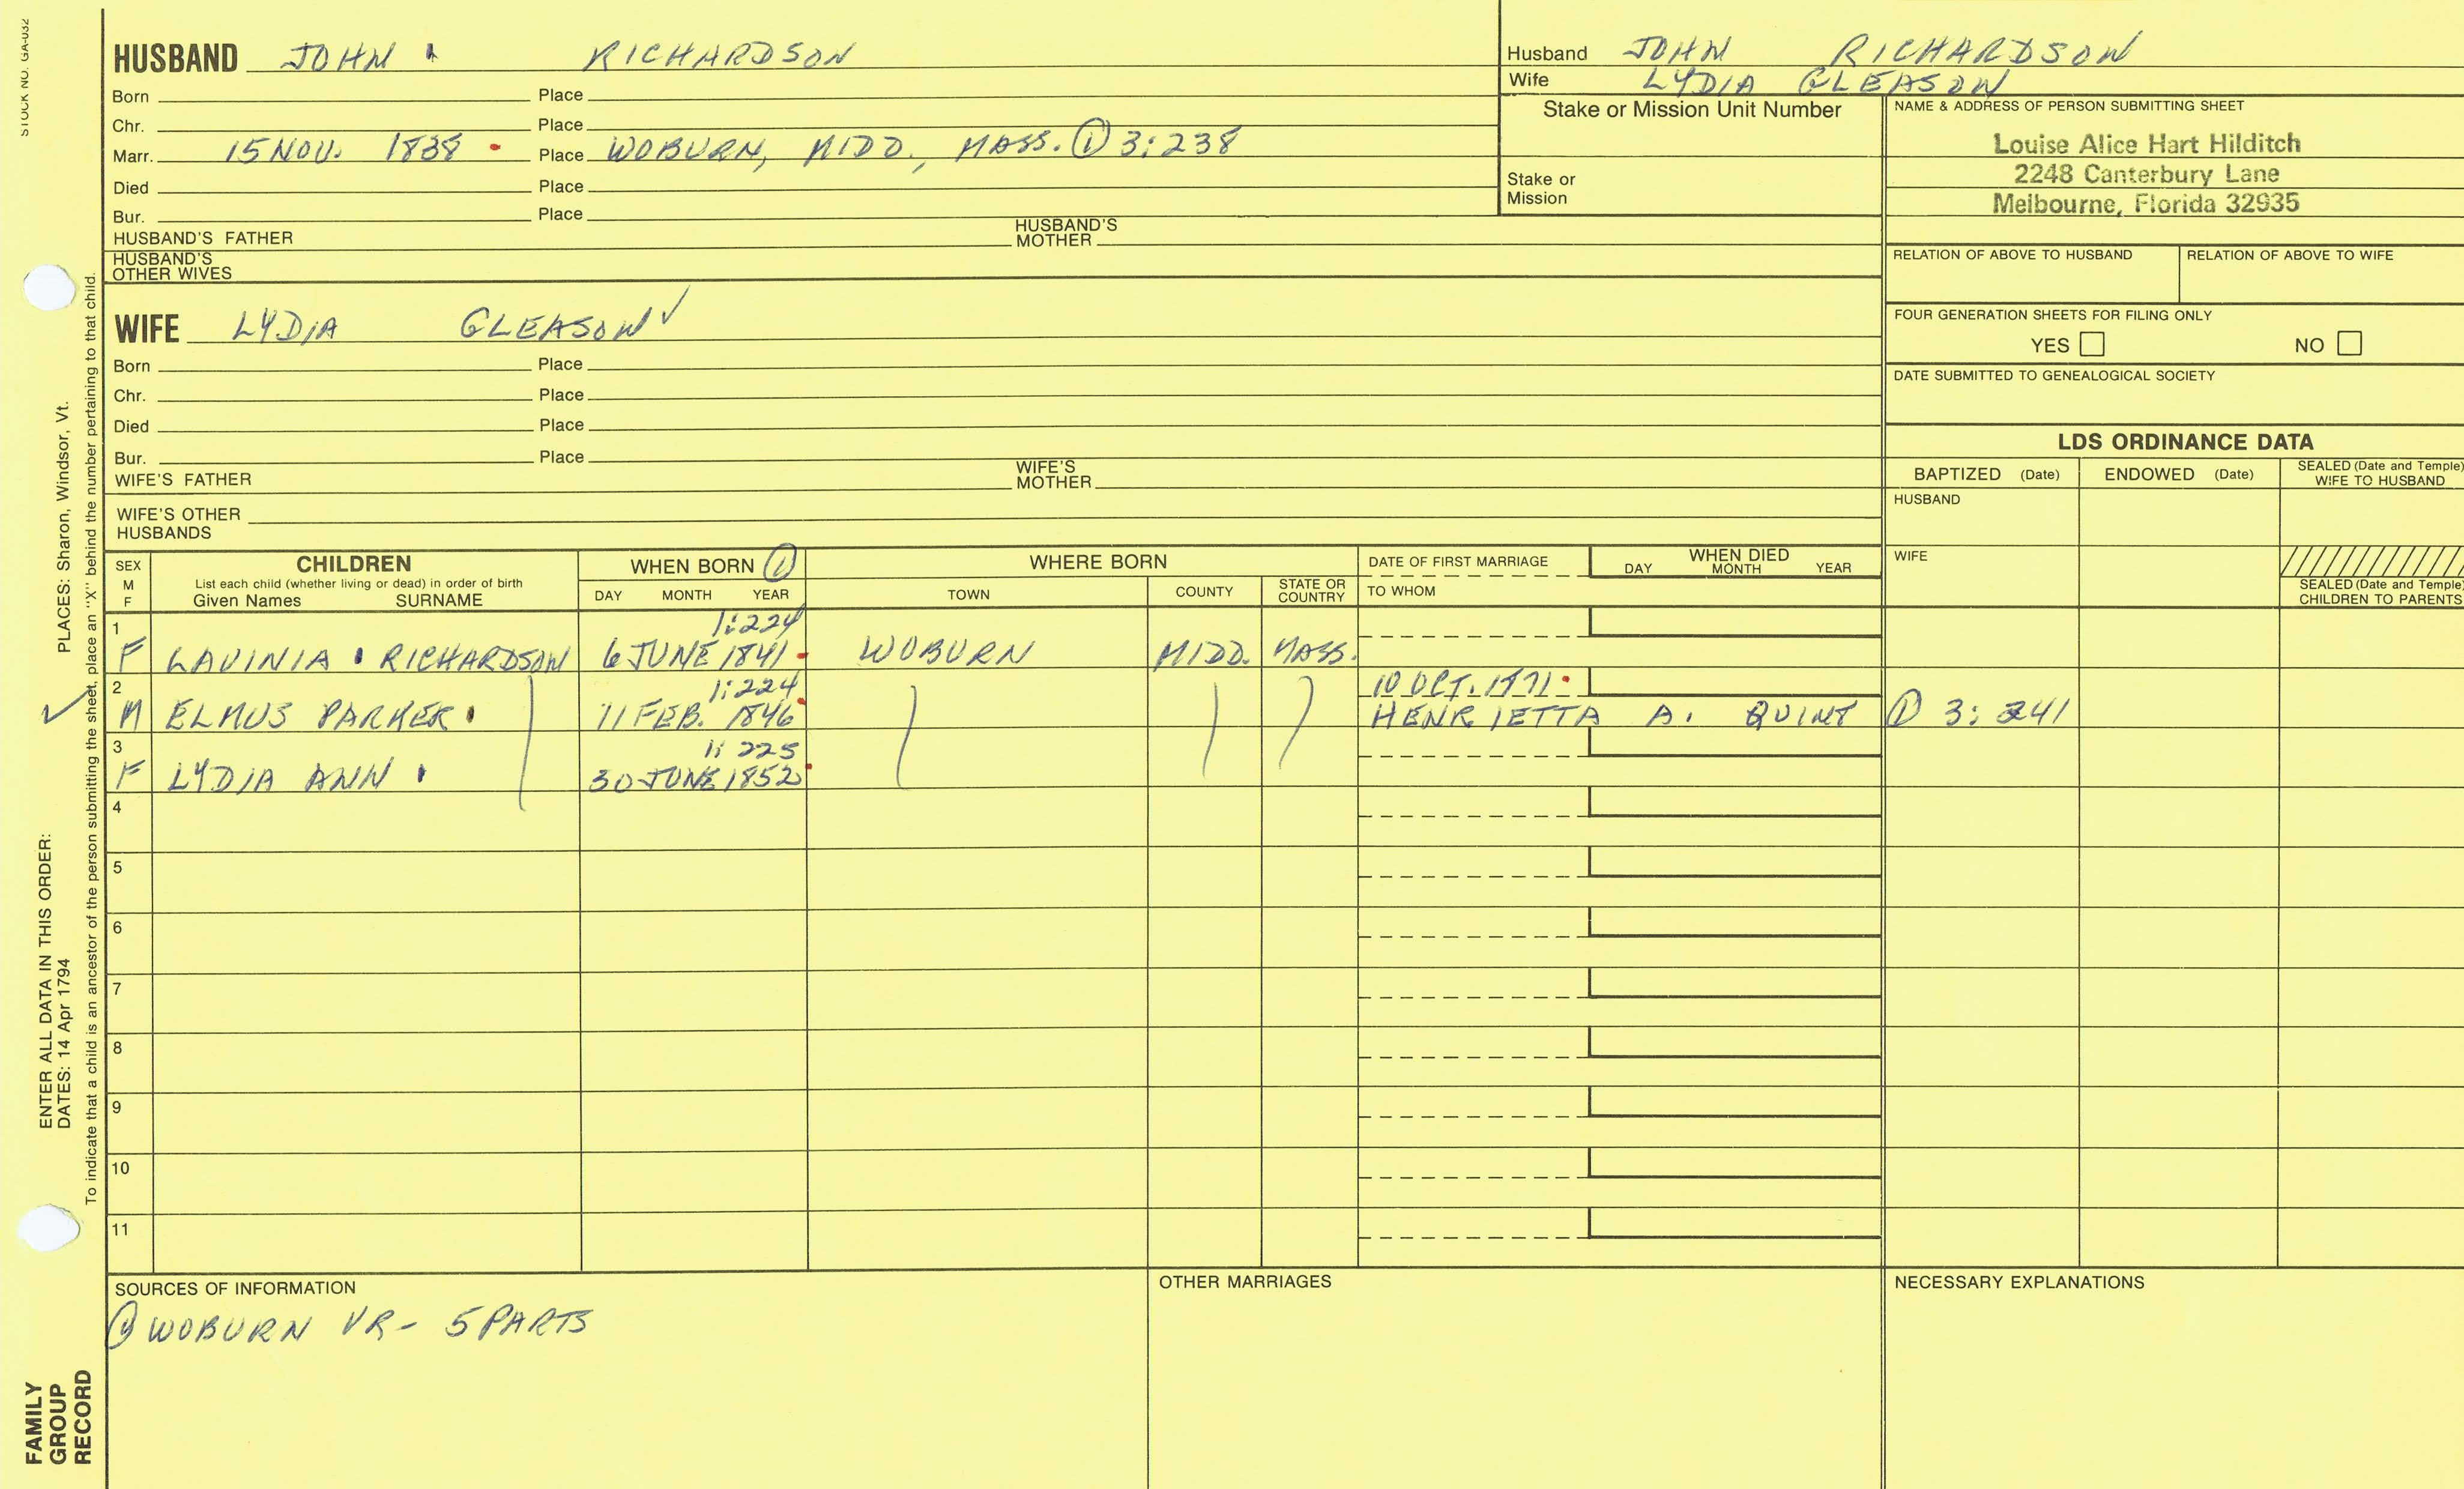 STOCK NO. GA-032
HUSBAND JOHN RICHARDSON
Born Place
Chr. Place
Marr. 15 NOV. 1838 Place WOBURN, MIDD., MASS. ① 3:238
Died Place
Bur. Place
HUSBAND'S FATHER HUSBAND'S MOTHER
HUSBAND'S OTHER WIVES
WIFE LYDIA GLEASON ✓
Born Place
Chr. Place
Died Place
Bur. Place
WIFE'S FATHER WIFE'S MOTHER
WIFE'S OTHER HUSBANDS
Husband JOHN RICHARDSON
Wife LYDIA GLEASON
Stake or Mission Unit Number
Stake or Mission
NAME & ADDRESS OF PERSON SUBMITTING SHEET
Louise Alice Hart Hilditch
2248 Canterbury Lane
Melbourne, Florida 32935
RELATION OF ABOVE TO HUSBAND RELATION OF ABOVE TO WIFE
FOUR GENERATION SHEETS FOR FILING ONLY
YES NO
DATE SUBMITTED TO GENEALOGICAL SOCIETY
LDS ORDINANCE DATA
BAPTIZED (Date) ENDOWED (Date) SEALED (Date and Temple) WIFE TO HUSBAND
HUSBAND
WIFE
SEALED (Date and Temple) CHILDREN TO PARENTS
SEX M F
CHILDREN
List each child (whether living or dead) in order of birth
Given Names SURNAME
WHEN BORN ①
DAY MONTH YEAR
WHERE BORN
TOWN COUNTY STATE OR COUNTRY
DATE OF FIRST MARRIAGE
TO WHOM
WHEN DIED
DAY MONTH YEAR
1 1:224
F LAVINIA RICHARDSON 6 JUNE 1841 WOBURN MIDD. MASS.
2 1:224 10 OCT. 1871
✓ M ELMUS PARKER 11 FEB. 1846 HENRIETTA A. QUINT ① 3:241
3 1:225
F LYDIA ANN 30 JUNE 1852
4
5
6
7
8
9
10
11
SOURCES OF INFORMATION
① WOBURN VR- 5 PARTS
OTHER MARRIAGES
NECESSARY EXPLANATIONS
PLACES: Sharon, Windsor, Vt.
ENTER ALL DATA IN THIS ORDER:
DATES: 14 Apr 1794
To indicate that a child is an ancestor of the person submitting the sheet, place an "X" behind the number pertaining to that child.
FAMILY
GROUP
RECORD